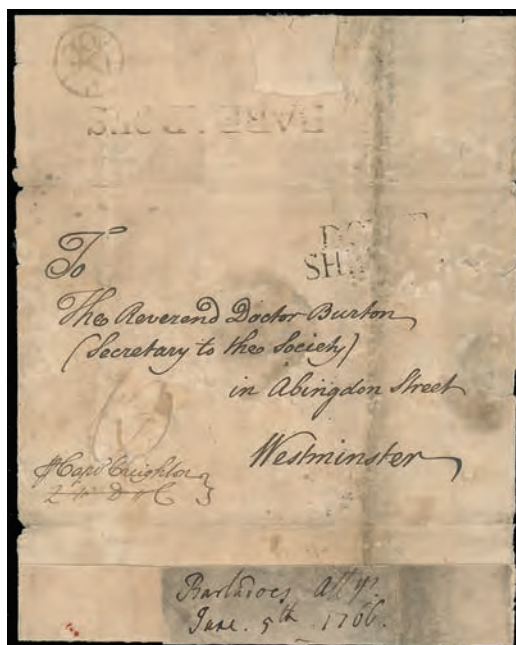 To
The Reverend Doctor Burton
(Secretary to the Society)
in Abingdon Street
Westminster
Capt Creighton
Barbadoes Att ys.
June. 5th 1766.